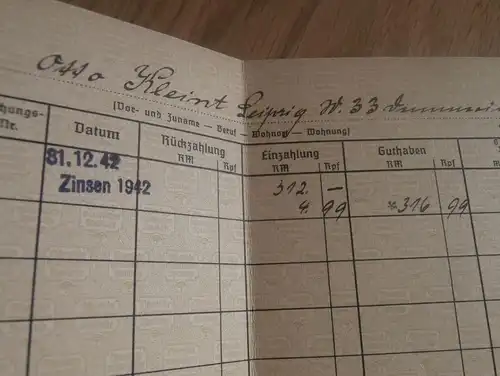 Otto Kleint Leipzig W. 33
(Vor- und Zuname – Beruf – Wohnort – Wohnung)
Datum Rückzahlung Einzahlung Guthaben
Nr. RM Rpf RM Rpf RM Rpf
31.12.42 312. —
Zinsen 1942 4. 99 316 99